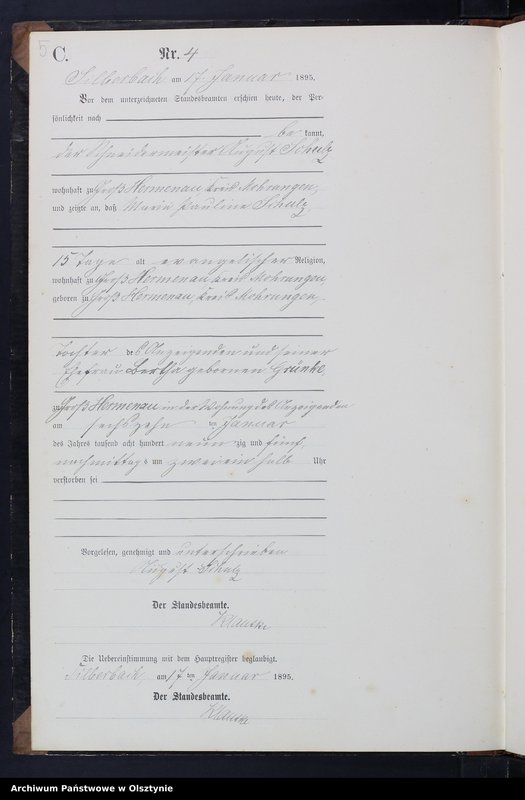 5
C.
Nr. 4
Silberbach am 17. Januar 1895.
Vor dem unterzeichneten Standesbeamten erschien heute, der Per-
sönlichkeit nach
be kannt,
der Schneidermeister August Schulz
wohnhaft zu Groß Hermenau Kreis Mohrungen,
und zeigte an, daß Maria Pauline Schulz
15 Tage alt evangelischer Religion,
wohnhaft zu Groß Hermenau, Kreis Mohrungen,
geboren zu Groß Hermenau, Kreis Mohrungen,
Tochter des Anzeigenden und seiner
Ehefrau Bertha gebornen
zu Groß Hermenau in der Wohnung des Anzeigenden
am sechszehn ten Januar
des Jahres tausend acht hundert neun zig und fünf,
nachmittags um zwei ein halb Uhr
verstorben sei
Vorgelesen, genehmigt und unterschrieben
August Schulz
Der Standesbeamte.
Die Uebereinstimmung mit dem Hauptregister beglaubigt.
Silberbach, am 17 ten Januar 1895.
Der Standesbeamte.
Archiwum Państwowe w Olsztynie